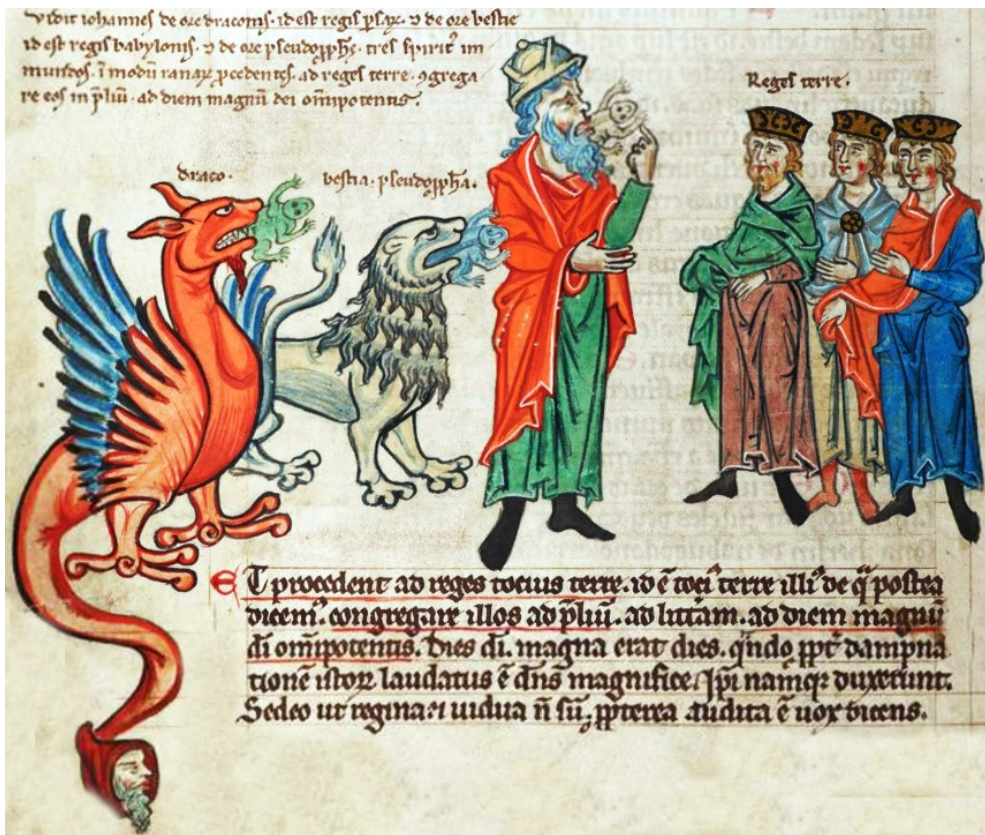 Vidit iohannes de ore draconis. id est regis ꝑsaꝝ. ⁊ de ore bestie
id est regis babylonis. ⁊ de ore pseudoꝓphe. tres spirit᷒ im
mundos. ī modū ranaꝝ ꝓcedentes. ad reges terre. ꝯgrega
re eos in p̄liū. ad diem magnū dei om̄ipotentis.
Reges terre.
draco.
bestia. pseudoꝓpha.
ET procedent ad reges tocius terre. id ē toci᷒ terre illi᷒ de q̄ postea
dicem᷒. congregare illos ad p̄liū. ad diem magnū
di om̄ipotentis. Dies di. magna erat dies. qn̄do ꝓpt̄ dampna
tionē istoꝝ laudatus ē dn̄s magnifice. Ipi namqꝫ duxerunt.
Sedeo ut regina ⁊ uidua n̄ sū. ꝓpterea audita ē uox dicens.